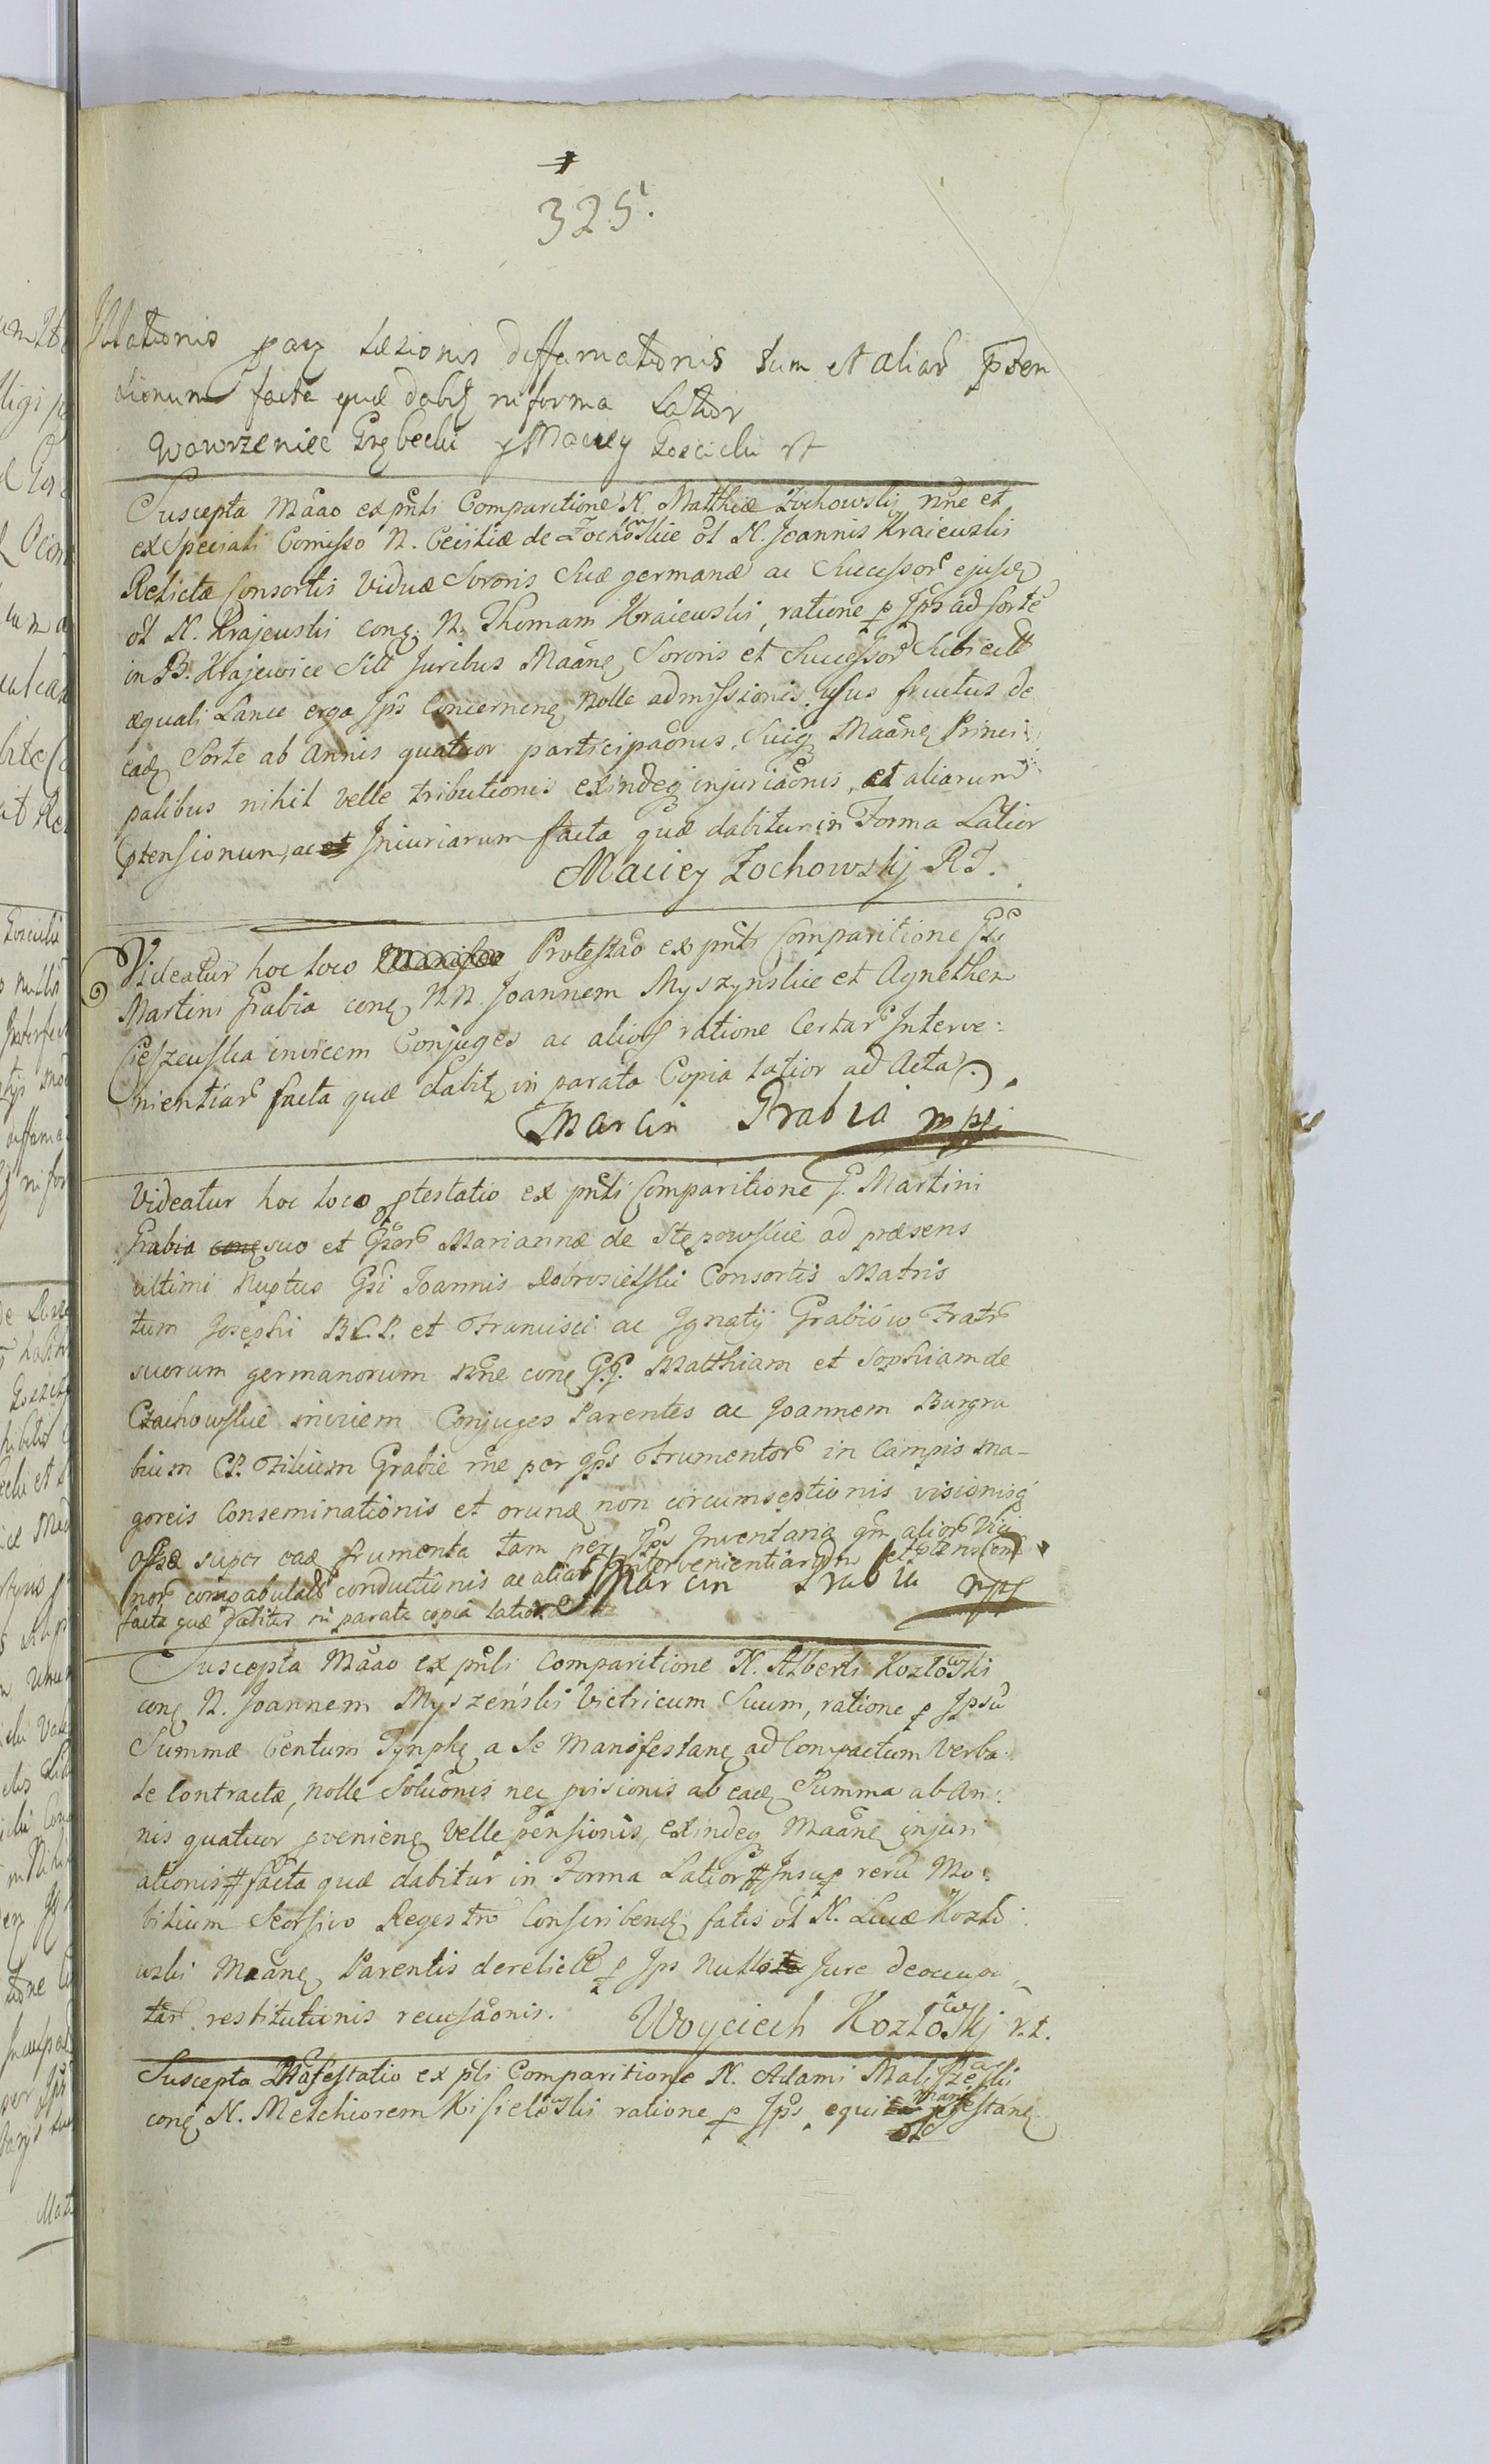 325.
Illationis pariterque læsionis diffamationis tum et aliar̃ ꝑten
sionum facta quæ dabitꝫ in forma Latior
Wawrzeniec Grębecki y Maciey Kościcki rt
Suscepta Mãao ex pñti Comparitione N. Matthiæ Żochowskij nñe et
ex Speciali Comisso N. Ceciliæ de Żochowskie ol N. Joannis Kraiewski
Relictæ Consortis Viduæ Sororis Suæ germanæ ac Successor̃ ejusdꝫ
ol N. Krajewski conꝫ N. Thomam Kraiewski, ratione ꝑ Jps̃ ad sorte
in B. Krajewice Sitt Juribus Maãnꝫ Sororis et Successor̃ Subiectt
æquali Lance erga Jps̃ Concernenꝫ Nolle admissionis, Usus fructus de
eadꝫ Sorte ab Annis quatuor participaõnis, Suisqꝫ Maãnꝫ Princi:
palibus nihil velle tributionis exindeqꝫ injuriaõnis, et aliarum
ꝑtensionum, ac Iniuriarum facta quæ dabitur in Forma Latior
Maciey Żochowskj RJ.
Videatur hoc loco Manifes Protestão ex pñti Comparitione Gsi
Martini Grabia conꝫ NN. Joannem Myszynskie et Agnethem
Cieszewska invicem Conjuges ac alios ratione Certar̃ Interve:
nientiar̃ facta quæ dabitꝫ in parata Copia latior ad Acta.
Marcin Grabia mpp
Videatur hoc loco ꝓtestatio ex pñti Comparitione G. Martini
Grabia conꝫ suo et Gsor̃ Mariannæ de Stępowskie ad præsens
ultimi Nuptus Gsi Joannis Dobrosielski Consortis Matris
tum Josephi B.C.P. et Francisci ac Ignatij Grabiów Fratr̃
suorum germanorum nñe conꝫ G.G. Matthiam et Sophiam de
Czachowskie invicem Conjuges Parentes ac Joannem Burgra
bium CP. Filium Grabie rñe per Jps̃ Frumentor̃ in Campis Ma-
goreis Conseminationis et orunꝫ non circumseptionis visionisqꝫ
super eadꝫ frumenta tam per Jps̃ Inventaria qm̃ alior̃ Vici
nor̃ compabulaõis conductionis ac aliar̃ Intervenientiarum
facta quæ dabitur in parata copia latior
Marcin Grabia mpp
Suscepta Mãao ex pñti Comparitione N. Alberti Kozłowski
conꝫ N. Joannem Myszeński Victricum Suum, ratione ꝑ Jpsũ
Summæ Centum Tynphꝫ a Se Manifestanꝫ ad Compactum Verba.
le Contractæ, Nolle Soluõnis nec ab eadꝫ Summa ab An:
nis quatuor ꝓvenienꝫ Velle pensionis, exindeqꝫ Maãnꝫ injuri
ationis # facta quæ dabitur in Forma Latior # Insuꝑ rerũ Mo:
bilium Seorsivo Regestro Conscribendꝫ fatis ol N. Lucæ Kozło:
wski Maãnꝫ Parentis derelictt ꝑ Jps̃ Nullo Jure deoccupa
tar̃ restitutionis recusaõnis.
Woyciech Kozłowskj r.t.
Suscepta Mãfestatio ex pñti Comparitione N. Adami Maliszewski
conꝫ N. Melchiorem Kisielewski ratione ꝑ Jps̃ equi manifestanꝫ